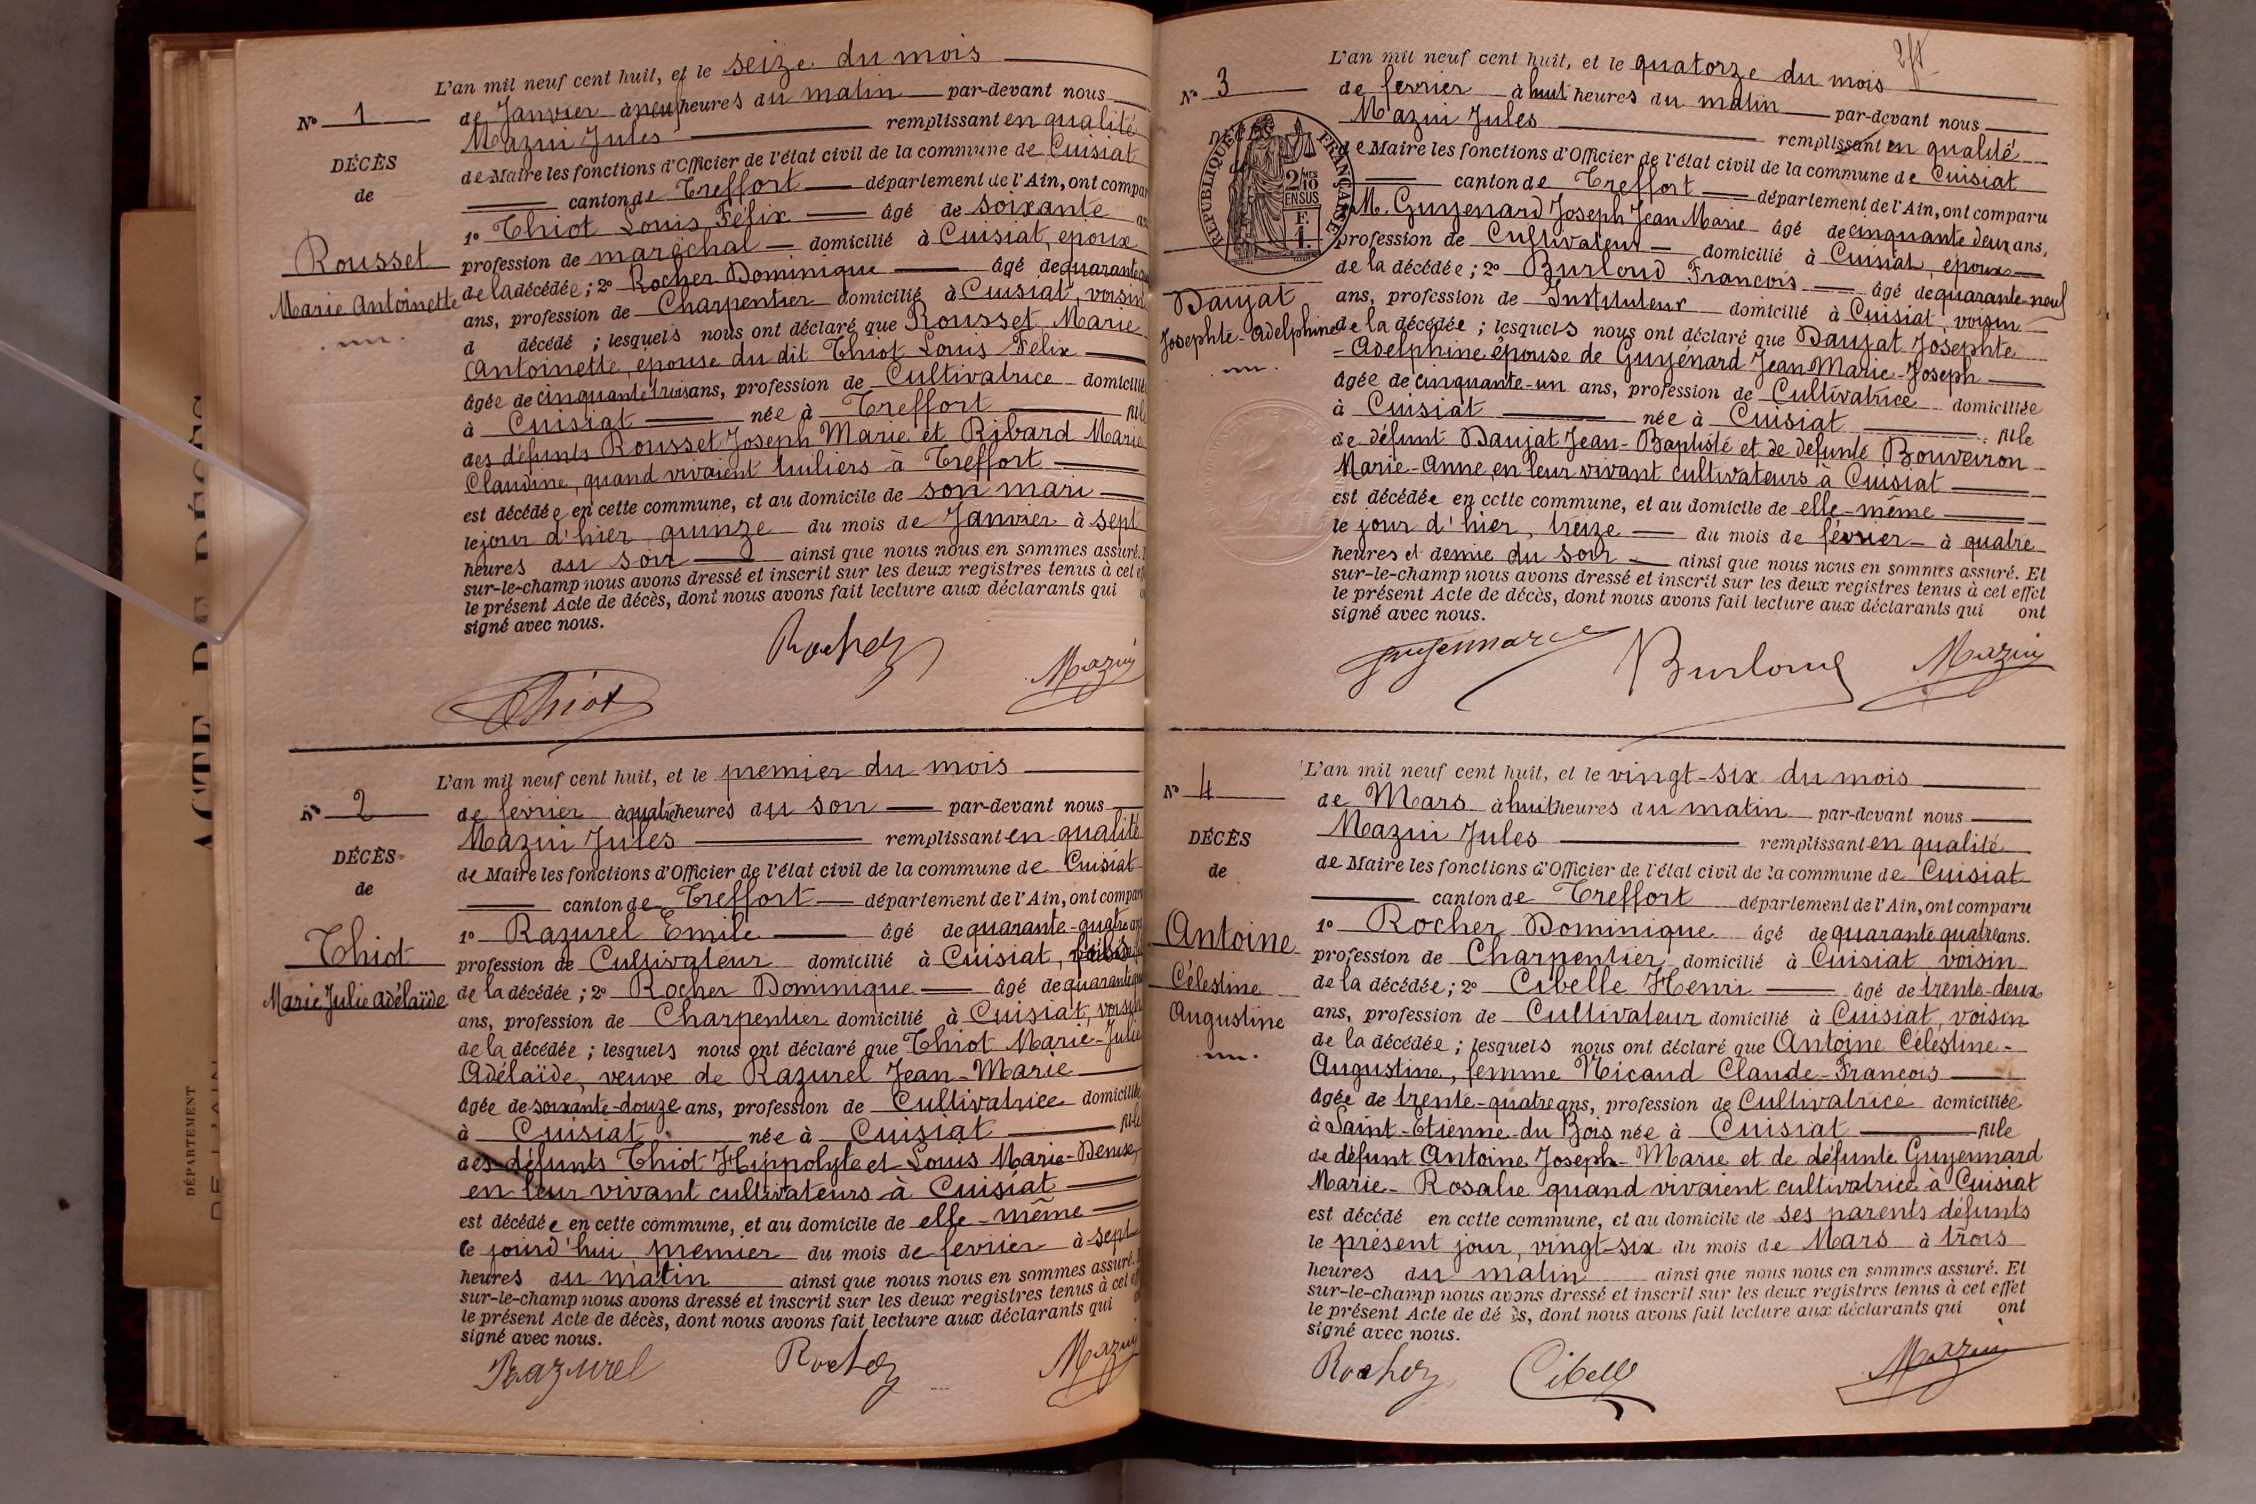 ACTE DE DÉCÈS
DÉPARTEMENT
DE L'AIN
L'an mil neuf cent huit, et le seize du mois
N° 1
de Janvier à neuf heures du matin par-devant nous
Mazui Jules remplissant en qualité
de Maire les fonctions d'Officier de l'état civil de la commune de Cuisiat
canton de Treffort département de l'Ain, ont compar
DÉCÈS
de
Rousset
Marie Antoinette
1° Thiot Louis Félix âgé de soixante
profession de maréchal domicilié à Cuisiat, epoux
de la décédée ; 2° Rocher Dominique âgé de quarante
ans, profession de Charpentier domicilié à Cuisiat, voisin
d décédé ; lesquels nous ont déclaré que Rousset Marie
Antoinette, epouse du dit Thiot Louis Félix
âgée de cinquante trois ans, profession de Cultivatrice domiciliée
à Cuisiat née à Treffort fille
des défunts Rousset Joseph Marie et Ribard Marie
Claudine, quand vivaient tuiliers à Treffort
est décédée en cette commune, et au domicile de son mari
le jour d'hier quinze du mois de Janvier à sept
heures du soir ainsi que nous nous en sommes assuré.
sur-le-champ nous avons dressé et inscrit sur les deux registres tenus à cet
le présent Acte de décès, dont nous avons fait lecture aux déclarants qui
signé avec nous.
Rocher
Mazui
Thiot
L'an mil neuf cent huit, et le premier du mois
N° 2
de fevrier à quatre heures du soir par-devant nous
Mazui Jules remplissant en qualité
de Maire les fonctions d'Officier de l'état civil de la commune de Cuisiat
canton de Treffort département de l'Ain, ont compar
DÉCÈS
de
Thiot
Marie Julie Adélaïde
1° Razurel Emile âgé de quarante-quatre ans
profession de Cultivateur domicilié à Cuisiat,
de la décédée ; 2° Rocher Dominique âgé de quarante
ans, profession de Charpentier domicilié à Cuisiat, voisin
de la décédée ; lesquels nous ont déclaré que Thiot Marie-Julie
Adélaïde, veuve de Razurel Jean-Marie
âgée de soixante-douze ans, profession de Cultivatrice domiciliée
à Cuisiat née à Cuisiat fille
des défunts Thiot Hippolyte et Louis Marie-Denise,
en leur vivant cultivateurs à Cuisiat
est décédée en cette commune, et au domicile de elle-même
le jourd'hui premier du mois de fevrier à sept
heures du matin ainsi que nous nous en sommes assuré.
sur-le-champ nous avons dressé et inscrit sur les deux registres tenus à cet
le présent Acte de décès, dont nous avons fait lecture aux déclarants qui
signé avec nous.
Razurel Rocher Mazui
L'an mil neuf cent huit, et le quatorze du mois
N° 3
de fevrier à huit heures du matin par-devant nous
Mazui Jules remplissant en qualité
de Maire les fonctions d'Officier de l'état civil de la commune de Cuisiat
canton de Treffort département de l'Ain, ont comparu
RÉPUBLIQUE FRANÇAISE
2/10 MES
EN SUS
F.
1.
Daujat
Josephte-Adelphine
M. Guyenard Joseph Jean Marie âgé de cinquante deux ans,
profession de Cultivateur domicilié à Cuisiat, epoux
de la décédée ; 2° Burloud François âgé de quarante-neuf
ans, profession de Instituteur domicilié à Cuisiat, voisin
de la décédée ; lesquels nous ont déclaré que Daujat Josephte
-Adelphine épouse de Guyénard Jean Marie-Joseph
âgée de cinquante-un ans, profession de Cultivatrice domiciliée
à Cuisiat née à Cuisiat fille
de défunt Daujat Jean-Baptiste et de défunte Bouveiron
Marie-Anne, en leur vivant cultivateurs à Cuisiat
est décédée en cette commune, et au domicile de elle-même
le jour d'hier, treize du mois de février à quatre
heures et demie du soir ainsi que nous nous en sommes assuré. Et
sur-le-champ nous avons dressé et inscrit sur les deux registres tenus à cet effet
le présent Acte de décès, dont nous avons fait lecture aux déclarants qui ont
signé avec nous.
Guyennard Burloud Mazui
L'an mil neuf cent huit, et le vingt-six du mois
N° 4
de Mars à huit heures du matin par-devant nous
Mazui Jules remplissant en qualité
de Maire les fonctions d'Officier de l'état civil de la commune de Cuisiat
canton de Treffort département de l'Ain, ont comparu
DÉCÈS
de
Antoine
Célestine
Augustine
1° Rocher Dominique âgé de quarante quatre ans.
profession de Charpentier domicilié à Cuisiat voisin
de la décédée ; 2° Cibelle Henri âgé de trente-deux
ans, profession de Cultivateur domicilié à Cuisiat, voisin
de la décédée ; lesquels nous ont déclaré que Antoine Célestine-
Augustine, femme Nicaud Claude-François
âgée de trente-quatre ans, profession de Cultivatrice domiciliée
à Saint-Etienne-du Bois née à Cuisiat fille
de défunt Antoine Joseph-Marie et de défunte Guyennard
Marie-Rosalie quand vivaient cultivatrice à Cuisiat
est décédé en cette commune, et au domicile de ses parents défunts
le présent jour, vingt-six du mois de Mars à trois
heures du matin ainsi que nous nous en sommes assuré. Et
sur-le-champ nous avons dressé et inscrit sur les deux registres tenus à cet effet
le présent Acte de dé ès, dont nous avons fait lecture aux déclarants qui ont
signé avec nous.
Rocher Cibelle Mazui